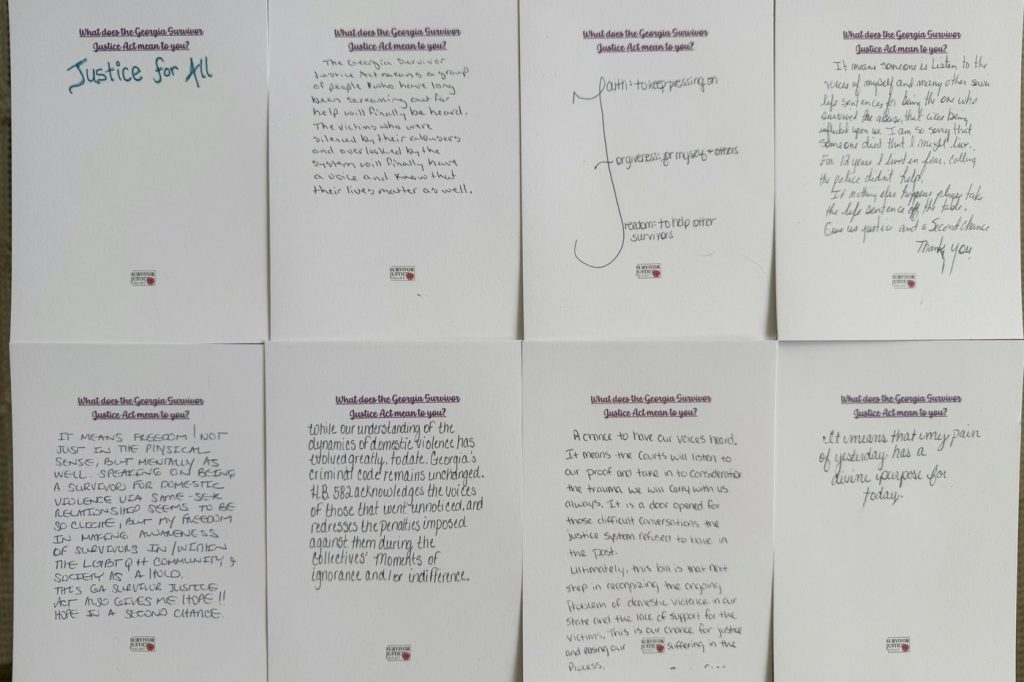 What does the Georgia Survivor
Justice Act mean to you?
Justice for All
SURVIVOR
JUSTICE
What does the Georgia Survivor
Justice Act mean to you?
The Georgia Survivor
Justice Act means a group
of people who have long
been screaming out for
help will finally be heard.
The victims who were
silenced by their abusers
and overlooked by the
system will finally have
a voice and know that
their lives matter as well.
SURVIVOR
JUSTICE
What does the Georgia Survivor
Justice Act mean to you?
Faith: to keep pressing on
Forgiveness: for myself + others
Freedom: to help other
survivors
SURVIVOR
JUSTICE
What does the Georgia Survivor
Justice Act mean to you?
It means someone is listen to the
voices of myself and many other
life sentences for being the one who
survived the abuse, that was being
inflicted upon us. I am so sorry that
someone died that I might live.
For 12 years I lived in fear, calling
the police didn't help.
If nothing else happens please take
the life sentence off the table.
Give us justice and a Second Chance
Thank You
SURVIVOR
JUSTICE
What does the Georgia Survivor
Justice Act mean to you?
IT MEANS FREEDOM! NOT
JUST IN THE PHYSICAL
SENSE, BUT MENTALLY AS
WELL. SPEAKING ON BEING
A SURVIVOR FOR DOMESTIC
VIOLENCE VIA SAME-SEX
RELATIONSHIP SEEMS TO BE
SO CLICHE, BUT MY FREEDOM
IN MAKING AWARENESS
OF SURVIVORS IN/WITHIN
THE LGBTQ++ COMMUNITY &
SOCIETY AS A HOLD.
THIS GA SURVIVOR JUSTICE
ACT ALSO GIVES ME HOPE!!
HOPE IN A SECOND CHANCE.
SURVIVOR
JUSTICE
What does the Georgia Survivor
Justice Act mean to you?
While our understanding of the
dynamics of domestic violence has
evolved greatly, to date, Georgia's
criminal code remains unchanged.
H.B. 582 acknowledges the voices
of those that went unnoticed, and
redresses the penalties imposed
against them during the
collectives' moments of
ignorance and/or indifference.
SURVIVOR
JUSTICE
What does the Georgia Survivor
Justice Act mean to you?
A chance to have our voices heard.
It means the Courts will listen to
our proof and take in to consideration
the trauma we will carry with us
always. It is a door opened for
those difficult conversations the
justice system refused to have in
the past.
Ultimately, this bill is that next
step in recognizing the ongoing
problem of domestic violence in our
state and the lack of support for the
victims. This is our chance for justice
and easing our suffering in the
process.
SURVIVOR
JUSTICE
What does the Georgia Survivor
Justice Act mean to you?
It means that my pain
of yesterday has a
divine purpose for
today.
SURVIVOR
JUSTICE